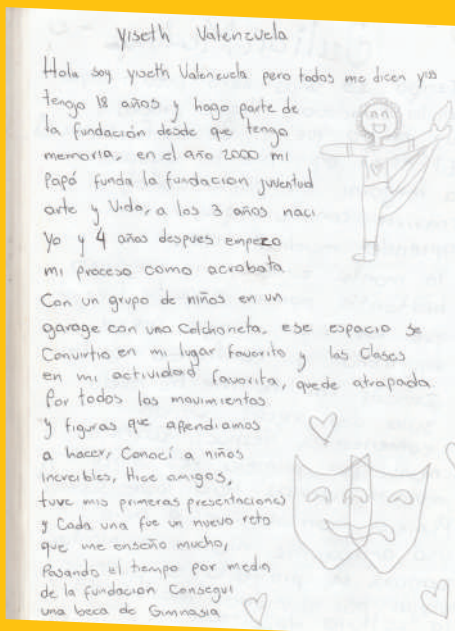 Yiseth Valenzuela
Hola soy yiseth Valenzuela pero todos me dicen yiss
tengo 18 años y hago parte de
la fundación desde que tengo
memoria, en el año 2000 mi
Papá funda la fundacion juventud
arte y Vida, a los 3 años naci
Yo y 4 años despues empezo
mi proceso como acrobata
Con un grupo de niños en un
garage con una Colchoneta, ese espacio se
Convirtio en mi lugar favorito y las Clases
en mi actividad favorita, quede atrapada
Por todos los movimientos
y figuras que aprendiamos
a hacer, Conocí a niños
increibles, Hice amigos,
tuve mis primeras presentaciones
y Cada una fue un nuevo reto
que me enseño mucho,
Pasando el tiempo por medio
de la fundación Consegui
una beca de Gimnasia